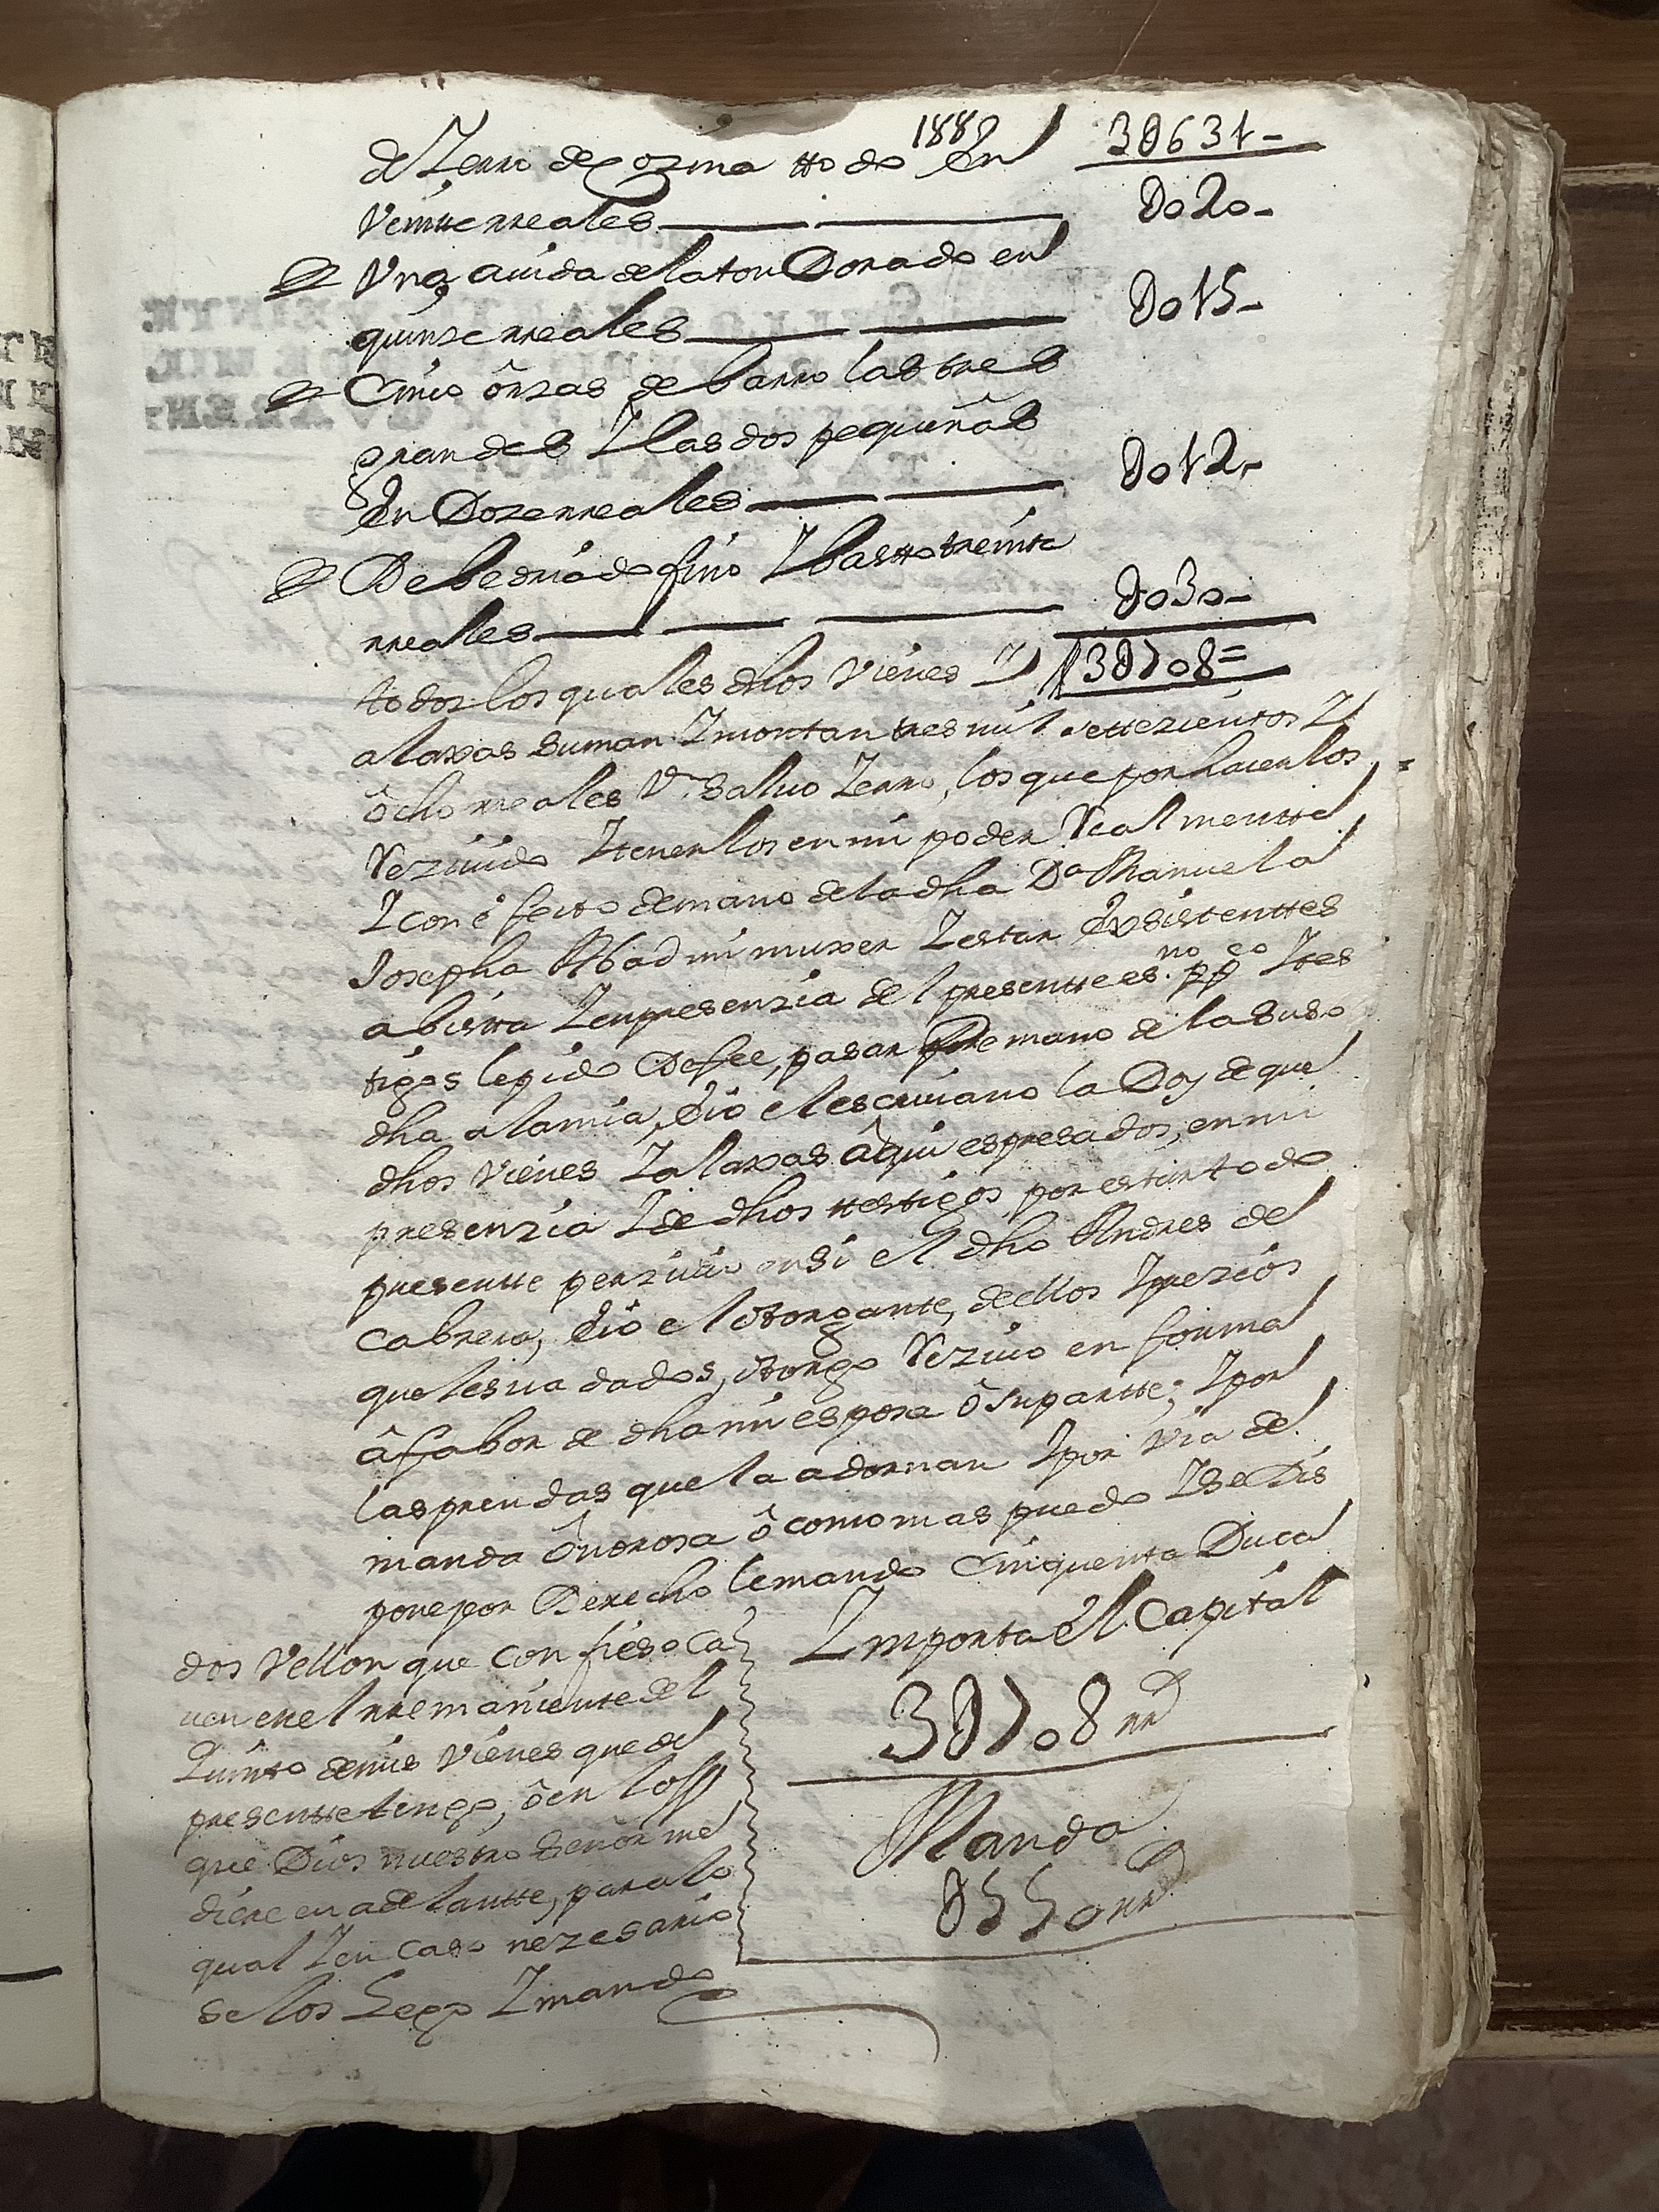 1882
de Zerro de cozina ttodo En 3U631-
Veintte rreales U020-
Una, auida de laton Dorado en
quinze rreales U015-
Cinco ôrzas de barro las tres
grandes Y las dos pequeñas
En Doze rreales U012-
De bedriado fino Y bastto treinta
rreales U030-
todos los quales dhos Vienes Y 3U708=
alaxas suman Y montan tres mil settezientos Y
ôcho rreales Vn. Salvo Zerro, los que por hacerlos
Rezivido Y tenerlos en mi poder Realmentte
Y con êfecto de mano de la dha Da Manuela
Josepha Abad mi muxer Y estar Exsistenttes
a bistta Y en presenzia del presentte es.no ppco Y tes
tigos le pido Defee, pasar de mano de la suso
dha a la mia, Eió el escriuano la Doy de que
dhos Vienes Y alaxas âqui espresados, en mi
presenzia Y de dhos testtigos, por estar todo
presentte perzivio en si el dho Andres de
Cabrera, Eió el ôtorgante, de ellos Y prezios
que les va dados, ôtorgo Rezivo en forma
â fabor de dha mi esposa ô su partte; Y por
las prendas que la adornan Y por Via de
manda ônorosa ô como mas puedo Y se Dis
pone por Derecho le mando Cinquenta Duca
dos Vellon que confieso ca
uen en el rremanientte del
Quinto de mis Vienes que de
presentte tengo, ô en los
que Dios nuestro Señor me
diere en adelantte, para lo
qual Y en caso nezesario
se los Lego Y mando
Importa el Capital
3U708 rrs
Manda
U550 rrs